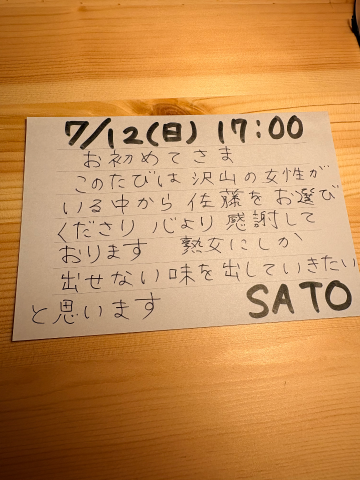 7/12(日) 17:00
お初めてさま
このたびは沢山の女性が
いる中から佐藤をお選び
くださり心より感謝して
おります 熟女にしか
出せない味を出していきたい
と思います
SATO